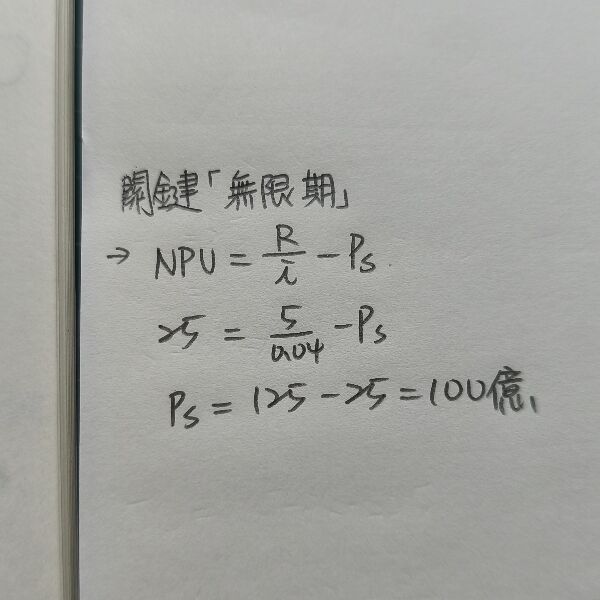 關鍵「無限期」
→ NPU = R/i - Ps
25 = 5/0.04 - Ps
Ps = 125 - 25 = 100億